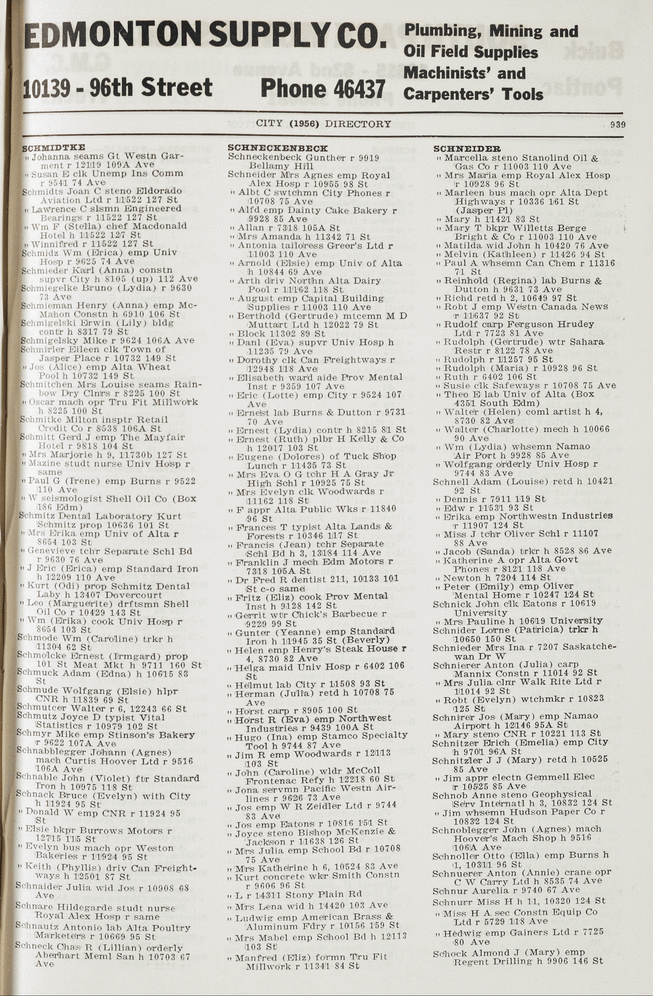 EDMONTON SUPPLY CO.
10139 - 96th Street Phone 46437
Plumbing, Mining and
Oil Field Supplies
Machinists' and
Carpenters' Tools
CITY (1956) DIRECTORY 939
SCHMIDTKE
" Johanna seams Gt Westn Gar-
ment r 12119 109A Ave
" Susan E clk Unemp Ins Comm
r 9541 74 Ave
Schmidts Joan C steno Eldorado
Aviation Ltd r 11522 127 St
" Lawrence C slsmn Engineered
Bearings r 11522 127 St
" Wm F (Stella) chef Macdonald
Hotel h 11522 127 St
" Winnifred r 11522 127 St
Schmidz Wm (Erica) emp Univ
Hosp r 9625 74 Ave
Schmieder Karl (Anna) constn
supvr City h 8105 (up) 112 Ave
Schmiegelke Bruno (Lydia) r 9630
73 Ave
Schmieman Henry (Anna) emp Mc-
Mahon Constn h 6910 106 St
Schmigelski Erwin (Lily) bldg
contr h 8317 79 St
Schmigelsky Mike r 9624 106A Ave
Schmirler Eileen clk Town of
Jasper Place r 10732 149 St
" Jos (Alice) emp Alta Wheat
Pool h 10732 149 St
Schmitchen Mrs Louise seams Rain-
bow Dry Clnrs r 8225 100 St
" Oscar mach opr Tru Fit Millwork
h 8225 100 St
Schmitke Milton insptr Retail
Credit Co r 8538 106A St
Schmitt Gerd J emp The Mayfair
Hotel r 9818 104 St
" Mrs Marjorie h 9, 11730b 127 St
" Mazine studt nurse Univ Hosp r
same
" Paul G (Irene) emp Burns r 9522
110 Ave
" W seismologist Shell Oil Co (Box
186 Edm)
Schmitz Dental Laboratory Kurt
Schmitz prop 10636 101 St
" Mrs Erika emp Univ of Alta r
8654 103 St
" Genevieve tchr Separate Schl Bd
r 9630 76 Ave
" J Eric (Erica) emp Standard Iron
h 12209 110 Ave
" Kurt (Odi) prop Schmitz Dental
Laby h 13407 Dovercourt
" Leo (Marguerite) drftsmn Shell
Oil Co r 10429 143 St
" Wm (Erika) cook Univ Hosp r
8654 103 St
Schmode Wm (Caroline) trkr h
11304 62 St
Schmolcke Ernest (Irmgard) prop
101 St Meat Mkt h 9711 160 St
Schmuck Adam (Edna) h 10615 83
St
Schmude Wolfgang (Elsie) hlpr
CNR h 11839 69 St
Schmutcer Walter r 6, 12243 66 St
Schmutz Joyce D typist Vital
Statistics r 10979 102 St
Schmyr Mike emp Stinson's Bakery
r 9622 107A Ave
Schnabblegger Johann (Agnes)
mach Curtis Hoover Ltd r 9516
106A Ave
Schnable John (Violet) ftr Standard
Iron h 10975 118 St
Schnack Bruce (Evelyn) with City
h 11924 95 St
" Donald W emp CNR r 11924 95
St
" Elsie bkpr Burrows Motors r
12715 115 St
" Evelyn bus mach opr Weston
Bakeries r 11924 95 St
" Keith (Phyllis) driv Can Freight-
ways h 12501 87 St
Schnaider Julia wid Jos r 10908 68
Ave
Schnare Hildegarde studt nurse
Royal Alex Hosp r same
Schnautz Antonio lab Alta Poultry
Marketers r 10669 95 St
Schneck Chas R (Lillian) orderly
Aberhart Meml San h 10703 67
Ave
SCHNECKENBECK
Schneckenbeck Gunther r 9919
Bellamy Hill
Schneider Mrs Agnes emp Royal
Alex Hosp r 10955 98 St
" Albt C swtchmn City Phones r
10708 75 Ave
" Alfd emp Dainty Cake Bakery r
9928 85 Ave
" Allan r 7318 105A St
" Mrs Amanda h 11342 71 St
" Antonia tailoress Greer's Ltd r
11003 110 Ave
" Arnold (Elsie) emp Univ of Alta
h 10844 69 Ave
" Arth driv Northn Alta Dairy
Pool r 11162 118 St
" August emp Capital Building
Supplies r 11003 110 Ave
" Berthold (Gertrude) mtcemn M D
Muttart Ltd h 12022 79 St
" Block 11302 89 St
" Danl (Eva) supvr Univ Hosp h
11235 79 Ave
" Dorothy clk Can Freightways r
12948 118 Ave
" Elisabeth ward aide Prov Mental
Inst r 9359 107 Ave
" Eric (Lotte) emp City r 9524 107
Ave
" Ernest lab Burns & Dutton r 9731
70 Ave
" Ernest (Lydia) contr h 8215 81 St
" Ernest (Ruth) plbr H Kelly & Co
h 12017 103 St
" Eugene (Dolores) of Tuck Shop
Lunch r 11435 73 St
" Mrs Eva O G tchr H A Gray Jr
High Schl r 10925 75 St
" Mrs Evelyn clk Woodwards r
11162 118 St
" F appr Alta Public Wks r 11840
96 St
" Frances T typist Alta Lands &
Forests r 10346 117 St
" Francis (Jean) tchr Separate
Schl Bd h 3, 13184 114 Ave
" Franklin J mech Edm Motors r
7318 105A St
" Dr Fred R dentist 211, 10133 101
St c-o same
" Fritz (Eliz) cook Prov Mental
Inst h 9128 142 St
" Gerrit wtr Chick's Barbecue r
9229 99 St
" Gunter (Yeanne) emp Standard
Iron h 11945 35 St (Beverly)
" Helen emp Henry's Steak House r
4, 8730 82 Ave
" Helga maid Univ Hosp r 6402 106
St
" Helmut lab City r 11508 93 St
" Herman (Julia) retd h 10708 75
Ave
" Horst carp r 8905 100 St
" Horst R (Eva) emp Northwest
Industries r 9439 100A St
" Hugo (Ina) emp Stamco Specialty
Tool h 9744 87 Ave
" Jim R emp Woodwards r 12113
103 St
" John (Caroline) wldr McColl
Frontenac Refy h 12218 60 St
" Jona servmn Pacific Westn Air-
lines r 9626 73 Ave
" Jos emp W R Zeidler Ltd r 9744
83 Ave
" Jos emp Eatons r 10816 151 St
" Joyce steno Bishop McKenzie &
Jackson r 11638 126 St
" Mrs Julia emp School Bd r 10708
75 Ave
" Mrs Katherine h 6, 10524 83 Ave
" Kurt concrete wkr Smith Constn
r 9606 96 St
" L r 14311 Stony Plain Rd
" Mrs Lena wid h 14420 103 Ave
" Ludwig emp American Brass &
Aluminum Fdry r 10156 159 St
" Mrs Mabel emp School Bd h 12113
103 St
" Manfred (Eliz) formn Tru Fit
Millwork r 11341 84 St
SCHNEIDER
" Marcella steno Stanolind Oil &
Gas Co r 11003 110 Ave
" Mrs Maria emp Royal Alex Hosp
r 10928 96 St
" Marleen bus mach opr Alta Dept
Highways r 10336 161 St
(Jasper Pl)
" Mary h 11421 83 St
" Mary T bkpr Willetts Berge
Bright & Co r 11003 110 Ave
" Matilda wid John h 10420 76 Ave
" Melvin (Kathleen) r 11426 94 St
" Paul A whsemn Can Chem r 11316
71 St
" Reinhold (Regina) lab Burns &
Dutton h 9631 73 Ave
" Richd retd h 2, 10649 97 St
" Robt J emp Westn Canada News
r 11637 92 St
" Rudolf carp Ferguson Hrudey
Ltd r 7723 81 Ave
" Rudolph (Gertrude) wtr Sahara
Restr r 8122 78 Ave
" Rudolph r 11257 95 St
" Rudolph (Maria) r 10928 96 St
" Ruth r 6402 106 St
" Susie clk Safeways r 10708 75 Ave
" Theo E lab Univ of Alta (Box
4351 South Edm)
" Walter (Helen) coml artist h 4,
8730 82 Ave
" Walter (Charlotte) mech h 10066
90 Ave
" Wm (Lydia) whsemn Namao
Air Port h 9928 85 Ave
" Wolfgang orderly Univ Hosp r
9744 83 Ave
Schnell Adam (Louise) retd h 10421
92 St
" Dennis r 7911 119 St
" Edw r 11531 93 St
" Erika emp Northwestn Industries
r 11907 124 St
" Miss J tchr Oliver Schl r 11107
88 Ave
" Jacob (Sanda) trkr h 8528 86 Ave
" Katherine A opr Alta Govt
Phones r 8121 118 Ave
" Newton h 7204 114 St
" Peter (Emily) emp Oliver
Mental Home r 10247 124 St
Schnick John clk Eatons r 10619
University
" Mrs Pauline h 10619 University
Schnider Lorne (Patricia) trkr h
10650 150 St
Schnieder Mrs Ina r 7207 Saskatche-
wan Dr W
Schnierer Anton (Julia) carp
Mannix Constn r 11014 92 St
" Mrs Julia clnr Walk Rite Ltd r
11014 92 St
" Robt (Evelyn) wtchmkr r 10823
125 St
Schnirer Jos (Mary) emp Namao
Airport h 12146 95A St
" Mary steno CNR r 10221 113 St
Schnitzer Erich (Emelia) emp City
h 9701 96A St
Schnitzler J J (Mary) retd h 10525
85 Ave
" Jim appr electn Gemmell Elec
r 10525 85 Ave
Schnob Anne steno Geophysical
Serv Internatl h 3, 10832 124 St
" Jim whsemn Hudson Paper Co r
10832 124 St
Schnoblegger John (Agnes) mach
Hoover's Mach Shop h 9516
106A Ave
Schnoller Otto (Ella) emp Burns h
1, 10311 96 St
Schnuerer Anton (Annie) crane opr
C W Carry Ltd h 8535 74 Ave
Schnur Aurelia r 9740 67 Ave
Schnurr Miss H h 11, 10320 124 St
" Miss H A sec Constn Equip Co
Ltd r 5729 118 Ave
" Hedwig emp Gainers Ltd r 7725
80 Ave
Schock Almond J (Mary) emp
Regent Drilling h 9906 146 St